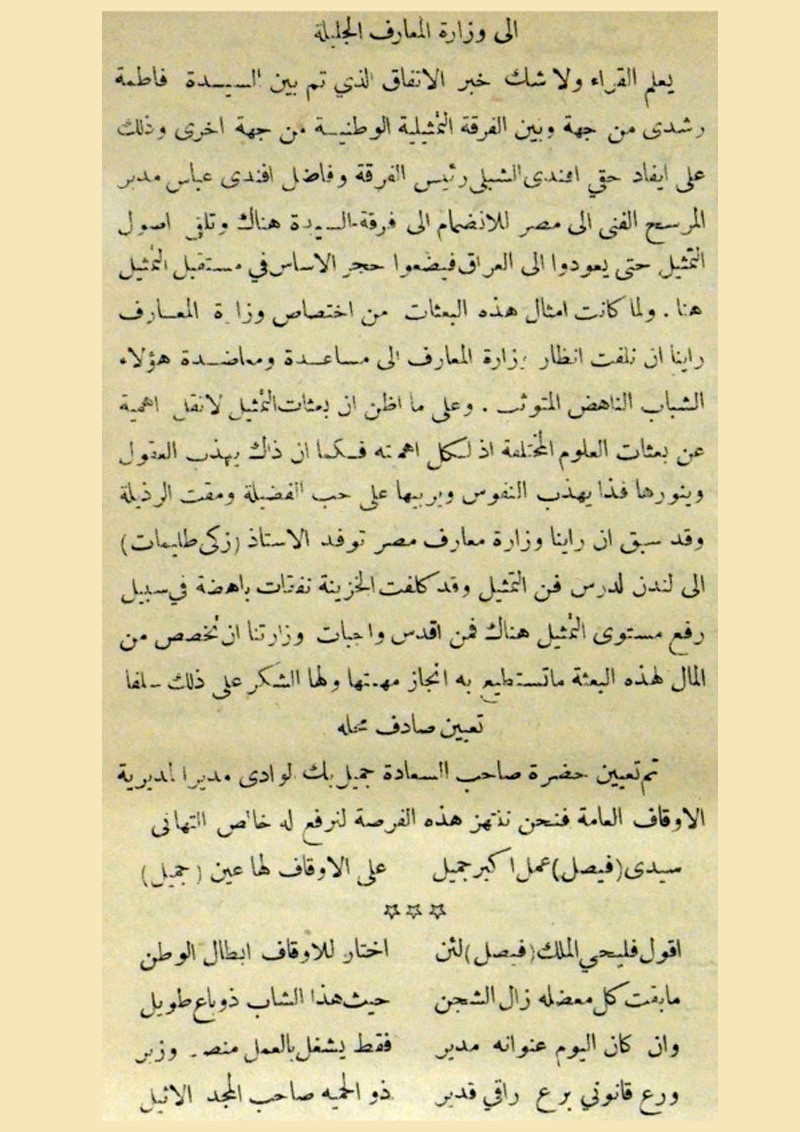 الى وزارة المعارف الجليلة
يعلم القراء ولا شك خبر الاتفاق الذي تم بين السيدة فاطمة
رشدى من جهة وبين الفرقة التمثيلية الوطنية من جهة اخرى وذلك
على ايفاد حقي افندى الشبلى رئيس الفرقة وفاضل افندى عباس مدير
المرسح الفنى الى مصر للانضمام الى فرقة السيدة هناك وتلقي اصول
التمثيل حتى يعودوا الى العراق فيضعوا حجر الاساس في مستقبل التمثيل
هنا . ولما كانت امثال هذه البعثات من اختصاص وزارة المعارف
راينا ان نلفت انظار وزارة المعارف الى مساعدة ومعاضدة هؤلاء
الشباب الناهض المتوثب . وعلى ما اظن ان بعثات التمثيل لا تقل اهمية
عن بعثات العلوم المختلفة اذ لكل اهميته فكما ان ذاك يهذب العقول
وينورها فذا يهذب النفوس ويربيها على حب الفضيلة ومقت الرذيلة
وقد سبق ان راينا وزارة معارف مصر توفد الاستاذ (زكى طليمات)
الى لندن لدرس فن التمثيل وقد كلفت الخزينة نفقات باهضة في سبيل
رفع مستوى التمثيل هناك فمن اقدس واجبات وزارتنا ان تخصص من
المال لهذه البعثة ما تستطيع به انجاز مهمتها ولها الشكر على ذلك سلفا
تعيين صادف محله
تم تعيين حضرة صاحب السعادة جميل بك لوادى مديرا لمديرية
الاوقاف العامة فنحن ننتهز هذه الفرصة لنرفع له خالص التهانى
سيدى (فيصل) عمل اكبر جميل على الاوقاف لها عين (جميل)
☆☆☆
اقول فليحي الملك (فيصل) لئن اختار للاوقاف ابطال الوطن
مابقت كل معضله زال الشجن حيث هذا الشاب ذو باع طويل
وان كان اليوم عنوانه مدير فقط يشغل بالعمل منصب وزير
ورع قانوني برع راقي قدير ذو الحميه صاحب المجد الاثيل